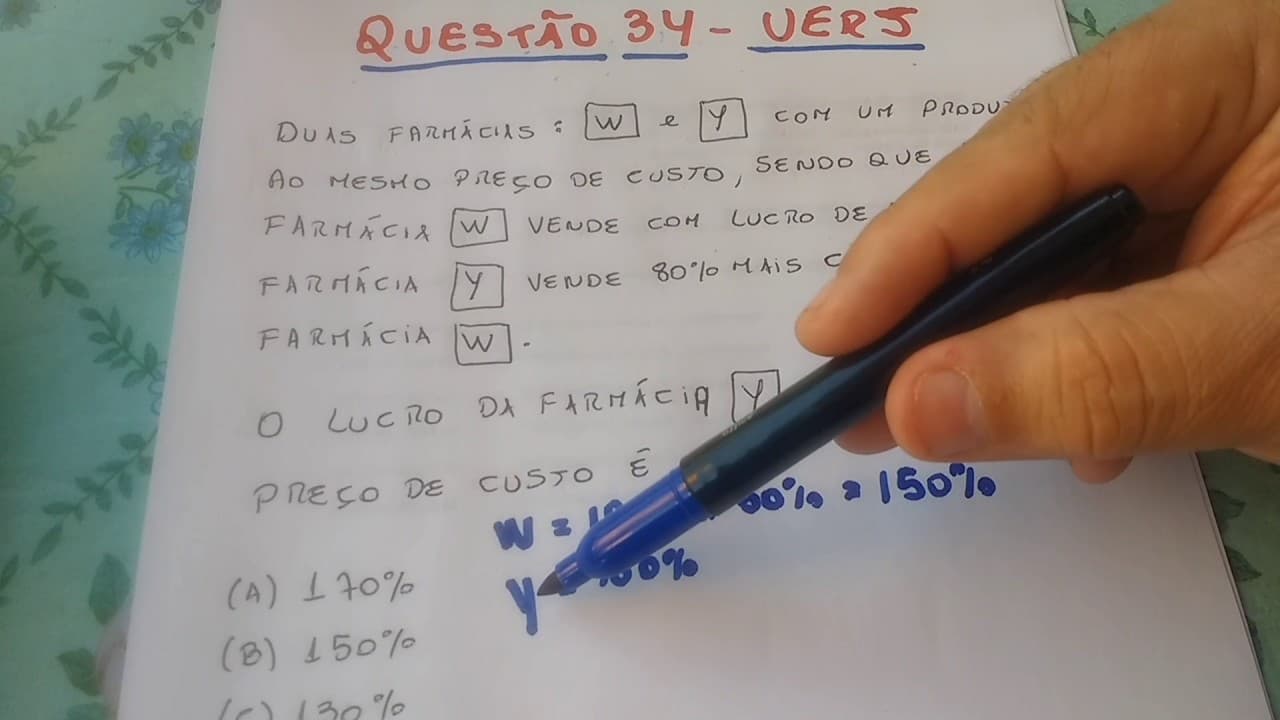 QUESTÃO 34 - UERJ
DUAS FARMÁCIAS: W e Y COM UM
AO MESMO PREÇO DE CUSTO, SENDO QUE
FARMÁCIA W VENDE COM LUCRO DE
FARMÁCIA Y VENDE 80% MAIS
FARMÁCIA W.
O LUCRO DA FARMÁCIA Y
PREÇO DE CUSTO É
W = = 150%
Y =
(A) 170%
(B) 150%
(C) 130%